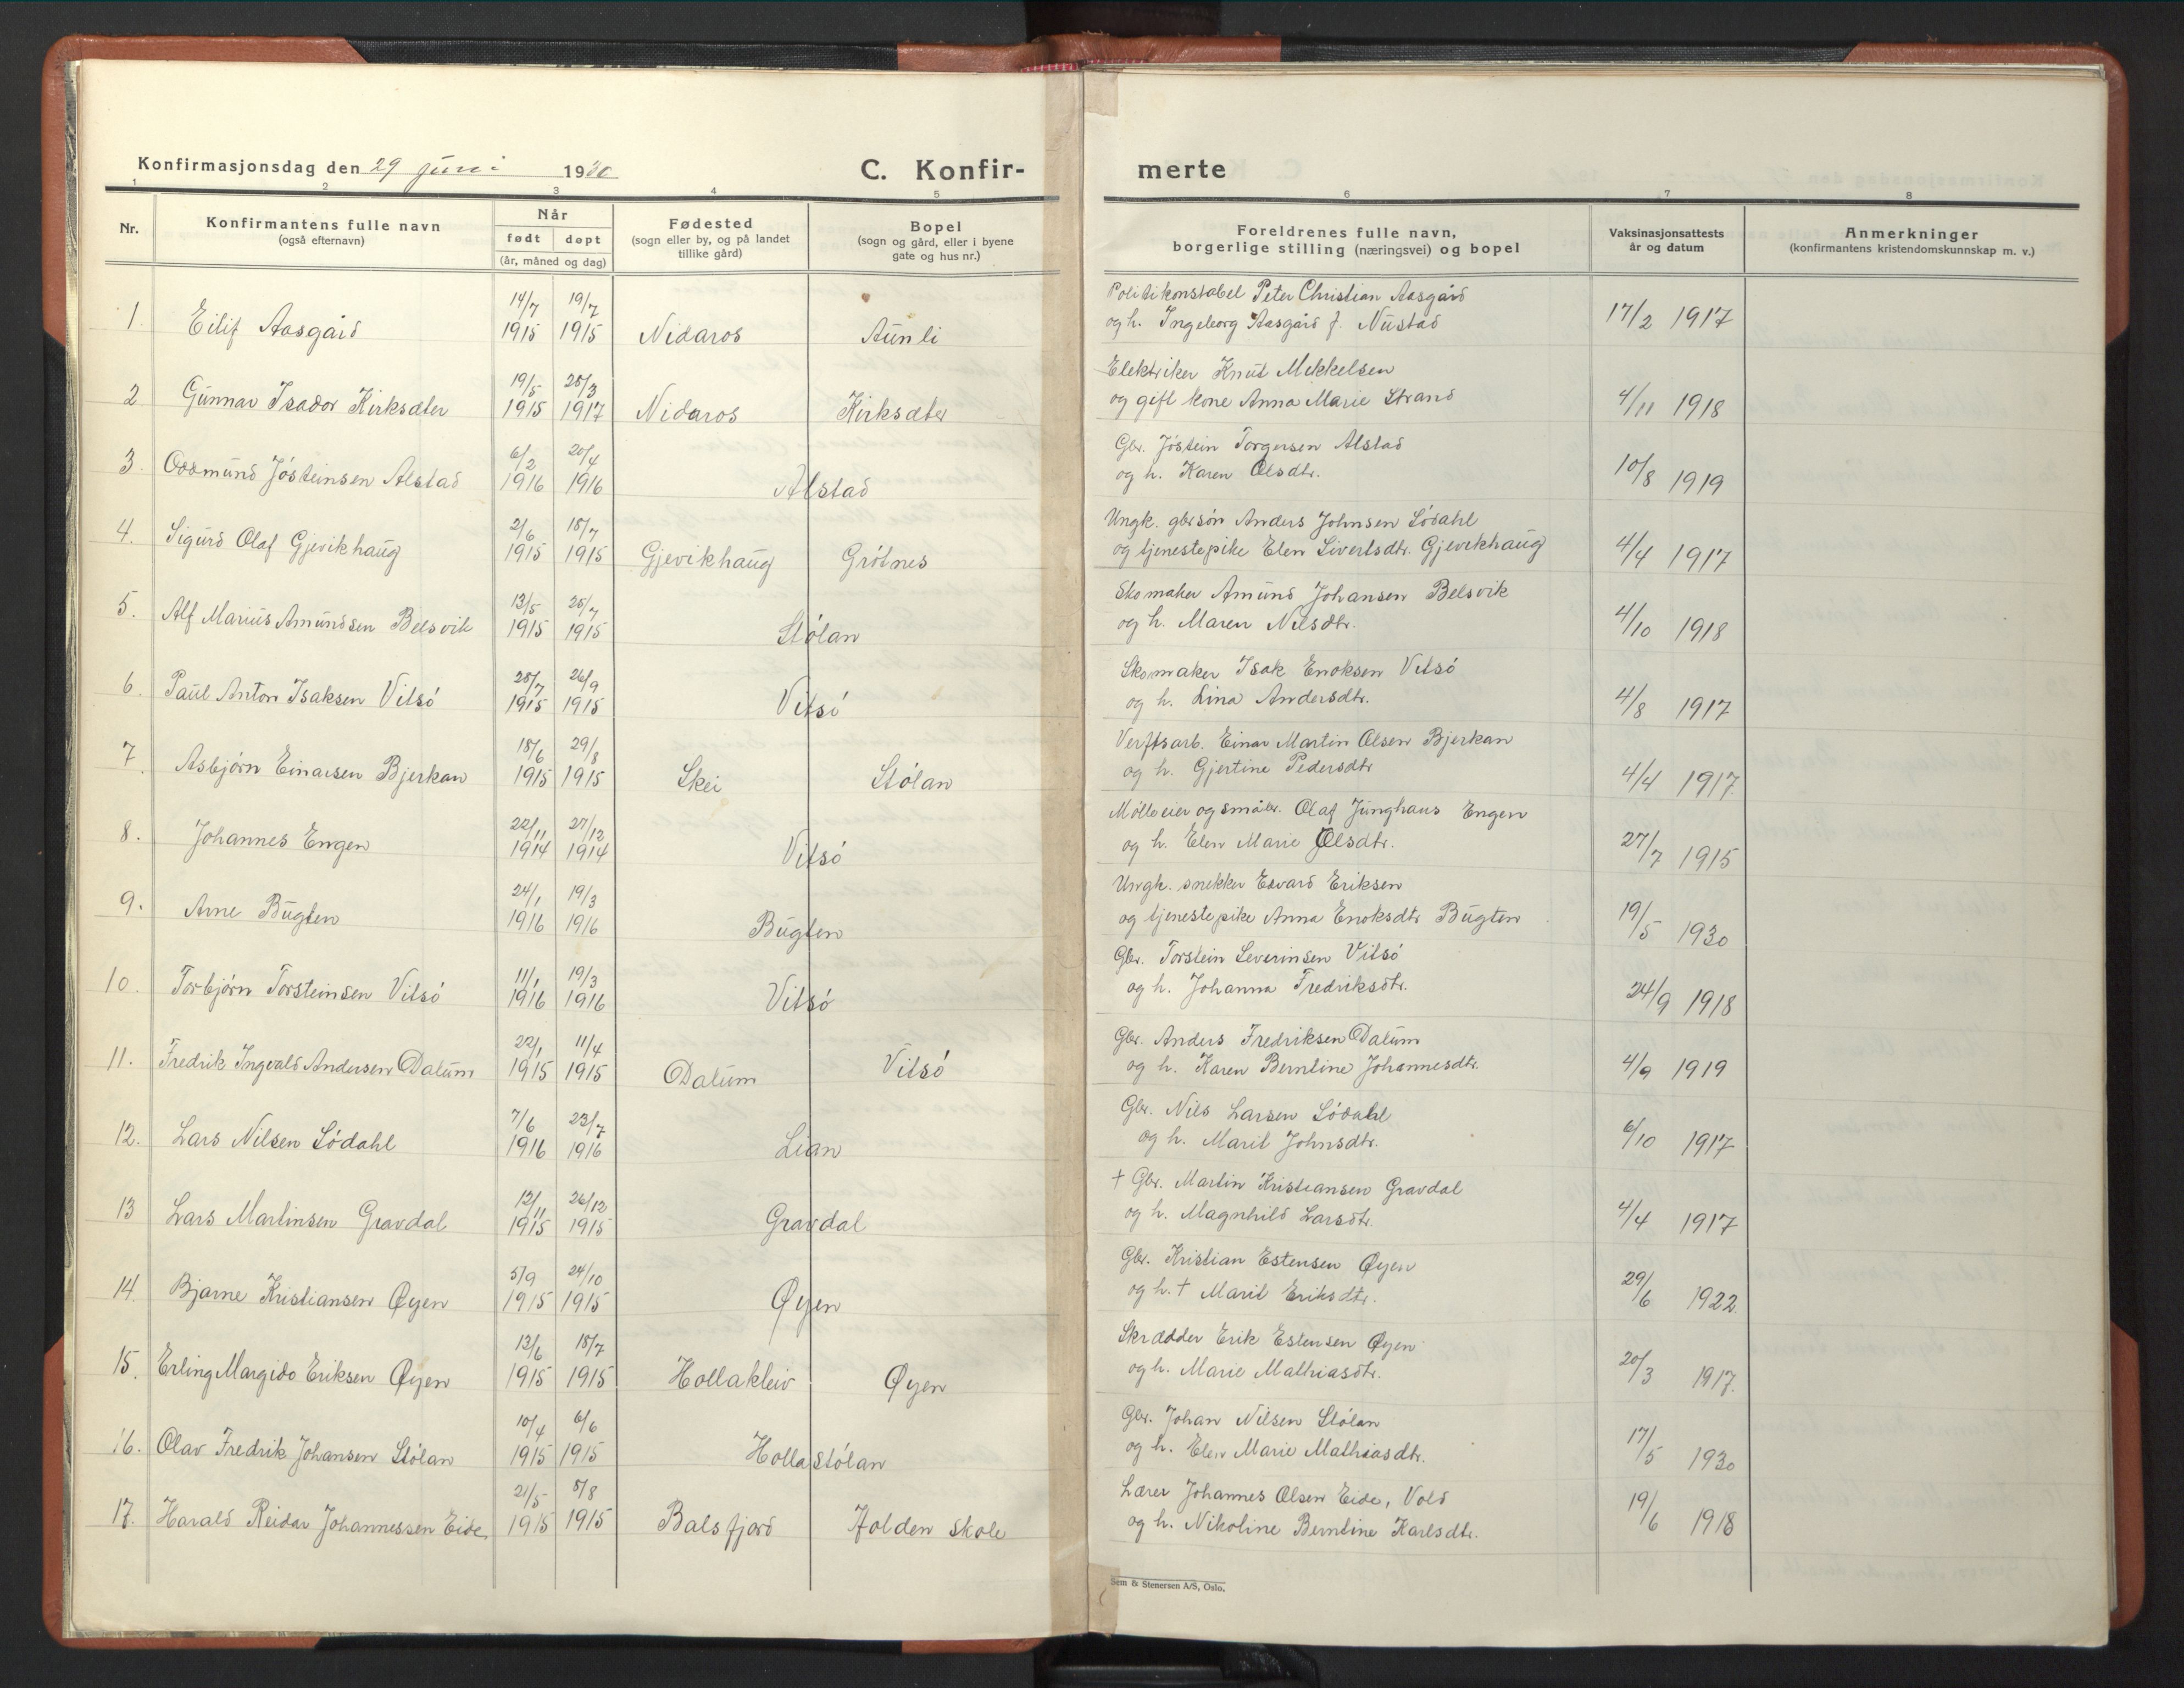 Konfirmasjonsdag den 29 juni 1930
C. Konfirmerte
1 2 3 4 5 6 7 8
Nr.
Konfirmantens fulle navn
(også efternavn)
Når
født døpt
(år, måned og dag)
Fødested
(sogn eller by, og på landet
tillike gård)
Bopel
(sogn og gård, eller i byene
gate og hus nr.)
Foreldrenes fulle navn,
borgerlige stilling (næringsvei) og bopel
Vaksinasjonsattests
år og datum
Anmerkninger
(konfirmantens kristendomskunnskap m. v.)
1. Eilif Aasgård 14/7 1915 19/7 1915 Nidaros Aunli
Politikonstabel Peter Christian Aasgård
og h. Ingeborg Aasgård f. Nustad 17/2 1917
2 Gunnar Isador Kirksæter 19/5 1915 25/3 1917 Nidaros Kirksæter
Elektriker Knut Mikkelsen
og gift kone Anna Marie Strand 4/11 1918
3. Oddmund Jósteinsen Alstad 6/2 1916 20/4 1916 Alstad
Gbr. Jóstein Torgersen Alstad
og h. Karen Olsdtr. 10/8 1919
4. Sigurd Olaf Gjevikhaug 2/6 1915 18/7 1915 Gjevikhaug Grótnes
Ungk. gbrsón Anders Johnsen Södahl
og tjenestepike Elen Sivertsdtr. Gjevikhaug 4/4 1917
5. Alf Marius Amundsen Belsvik 13/5 1915 25/7 1915 Stólan
Skomaker Amund Johansen Belsvik
og h. Maren Nilsdtr. 4/10 1918
6. Paul Anton Isaksen Vitsó 25/7 1915 26/9 1915 Vitsó
Skomaker Isak Enoksen Vitsó
og h. Lina Andersdtr. 4/8 1917
7. Asbjórn Einarsen Bjerkan 18/6 1915 29/8 1915 Skei Stólan
Verftsarb. Einar Martin Olsen Bjerkan
og h. Gjertine Pedersdtr 4/4 1917
8. Johannes Engen 22/11 1914 27/12 1914 Vitsó
Mólleeier og småbr. Olaf Junghans Engen
og h. Elen Marie Olsdtr. 27/7 1915
9. Arne Bugten 24/1 1916 19/3 1916 Bugten
Ungk. snekker Edvard Eriksen
og tjenestepike Anna Enoksdtr Bugten 19/5 1930
10. Torbjórn Torsteinsen Vitsó 11/1 1916 19/3 1916 Vitsó
Gbr. Torstein Severinsen Vitsó
og h. Johanna Fredriksdtr. 24/9 1918
11. Fredrik Ingvald Andersen Dalum 22/1 1915 11/4 1915 Dalum Vitsó
Gbr. Anders Fredriksen Dalum
og h. Karen Berntine Johannesdtr. 4/9 1919
12. Lars Nilsen Södahl 7/6 1916 23/7 1916 Lian
Gbr. Nils Larsen Södahl
og h. Marit Johnsdtr. 6/10 1917
13 Lars Martinsen Gravdal 12/11 1915 26/12 1915 Gravdal
† Gbr. Martin Kristiansen Gravdal
og h. Magnhild Larsdtr. 4/4 1917
14. Bjarne Kristiansen Øyen 5/9 1915 24/10 1915 Øyen
Gbr. Kristian Estensen Øyen
og h. † Marit Eriksdtr. 29/6 1922
15. Erling Margido Eriksen Øyen 13/6 1915 18/7 1915 Hollakleiv Øyen
Skrædder Erik Estensen Øyen
og h. Marie Mathiasdtr. 20/3 1917.
16. Olav Fredrik Johansen Stólan 10/4 1915 6/6 1915 Holla stólan
Gbr. Johan Nilsen Stólan
og h. Elen Marie Mathiasdtr. 17/5 1930
17. Harald Reidar Johannessen Eide, 21/5 1915 8/8 1915 Balsfjord Holden skole
Lærer Johannes Olsen Eide, Vold
og h. Nikoline Berntine Karlsdtr. 19/6 1918
Sem & Stenersen A/S, Oslo.